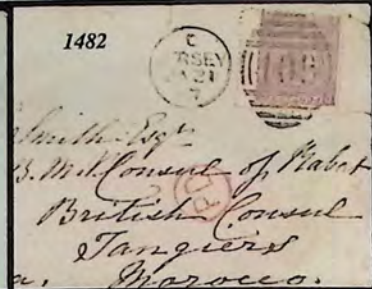 1482
C
RSEY
21
7
409
Smith Esqr
B. M. Consul of Rabat
PD
British Consul
Tangiers
Morocco.